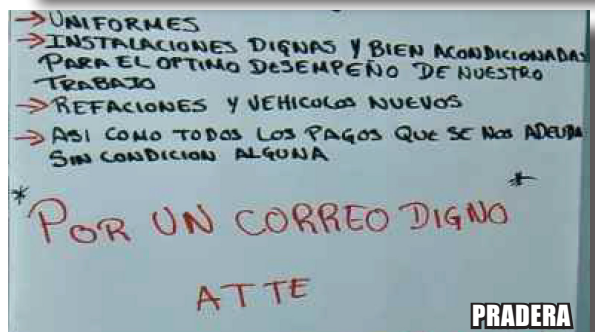 →UNIFORMES
→INSTALACIONES DIGNAS Y BIEN ACONDICIONADAS
PARA EL OPTIMO DESEMPEÑO DE NUESTRO
TRABAJO
→REFACIONES Y VEHICULOS NUEVOS
→ASI COMO TODOS LOS PAGOS QUE SE NOS ADEUDA
SIN CONDICION ALGUNA
* *
POR UN CORREO DIGNO
ATTE
PRADERA